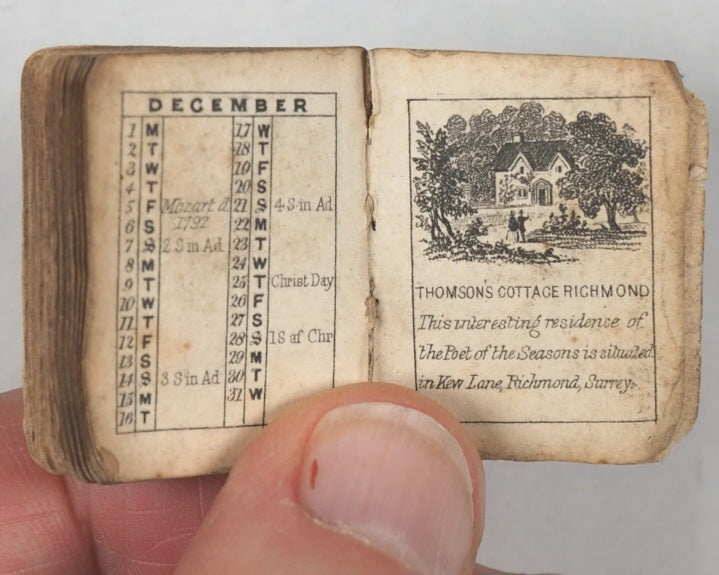 DECEMBER
1 M
2 T
3 W
4 T
5 F Mozart d.
6 S 1792
7 S 2 S in Ad
8 M
9 T
10 W
11 T
12 F
13 S
14 S 3 S in Ad
15 M
16 T
17 W
18 T
19 F
20 S
21 S 4 S in Ad
22 M
23 T
24 W
25 T Christ Day
26 F
27 S
28 S 1S af Chr
29 M
30 T
31 W
THOMSON'S COTTAGE RICHMOND
This interesting residence of
the Poet of the Seasons is situated
in Kew Lane, Richmond, Surrey.